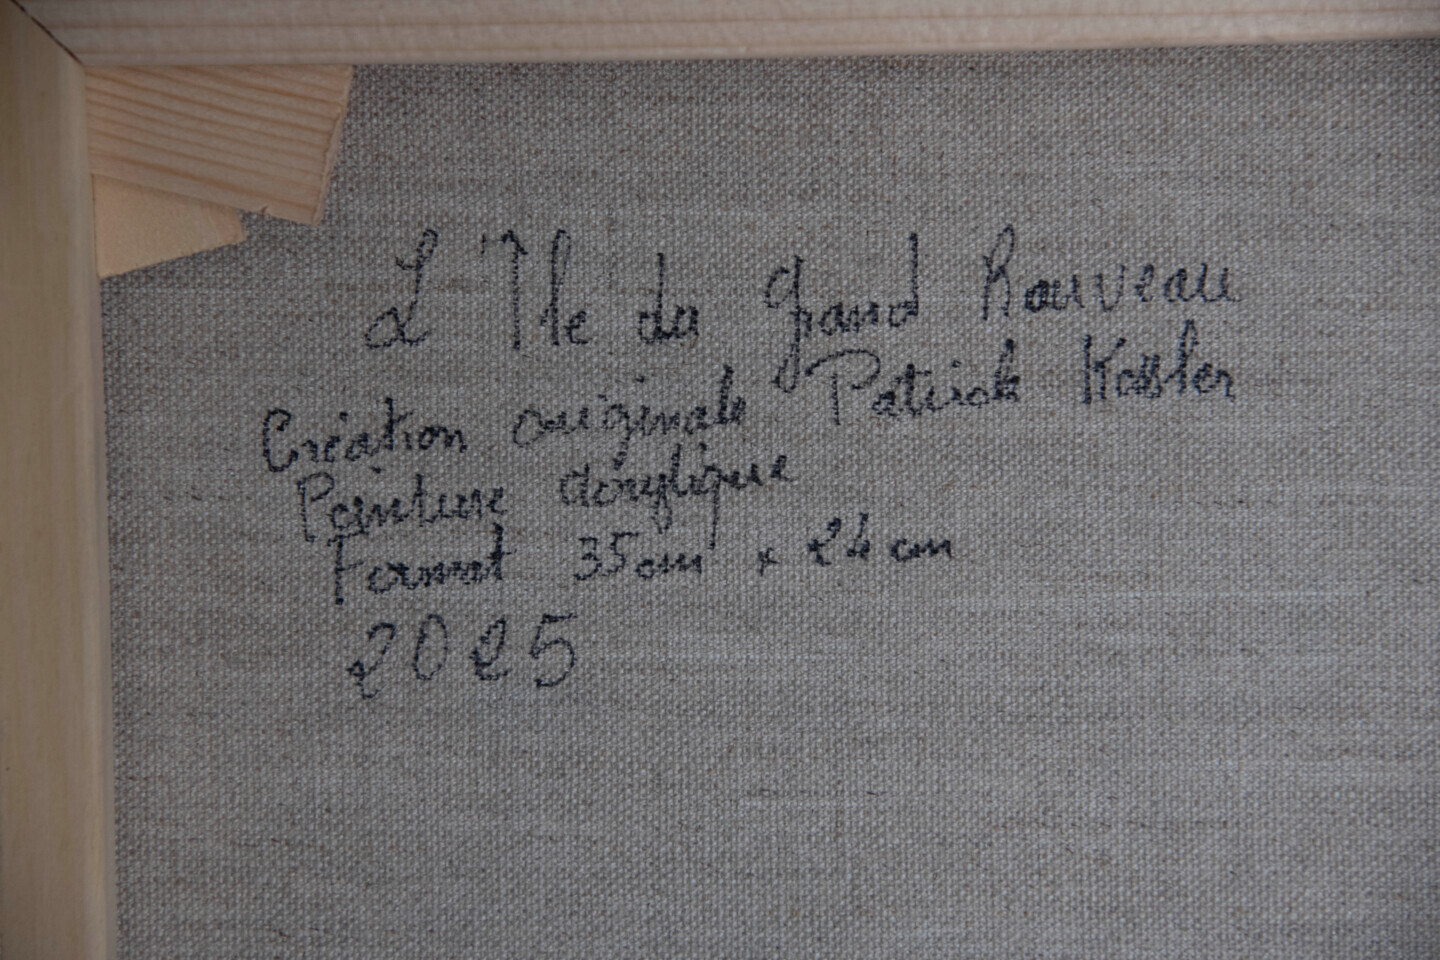 L'Île du grand Rouveau
Création originale Patrick Kossler
Peinture acrylique
Format 35cm x 24cm
2025